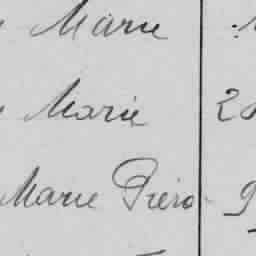 Marie
Marie 2
Marie Piero 9